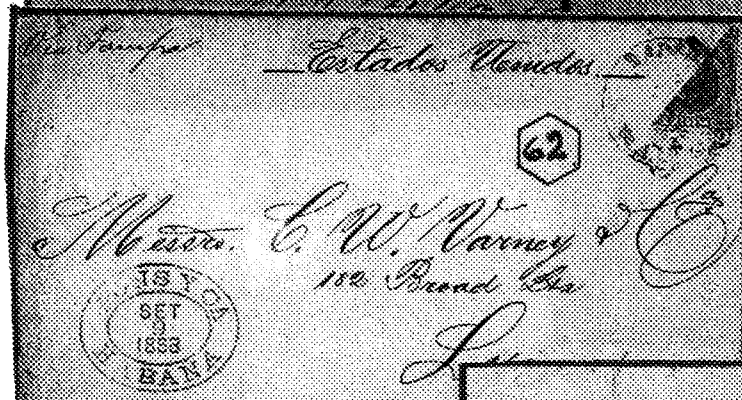 Via Tampa
Estados Unidos
62
Messrs. C. W. Varney & Co
182 Broad
IS Y CA
SET
1888
HABANA